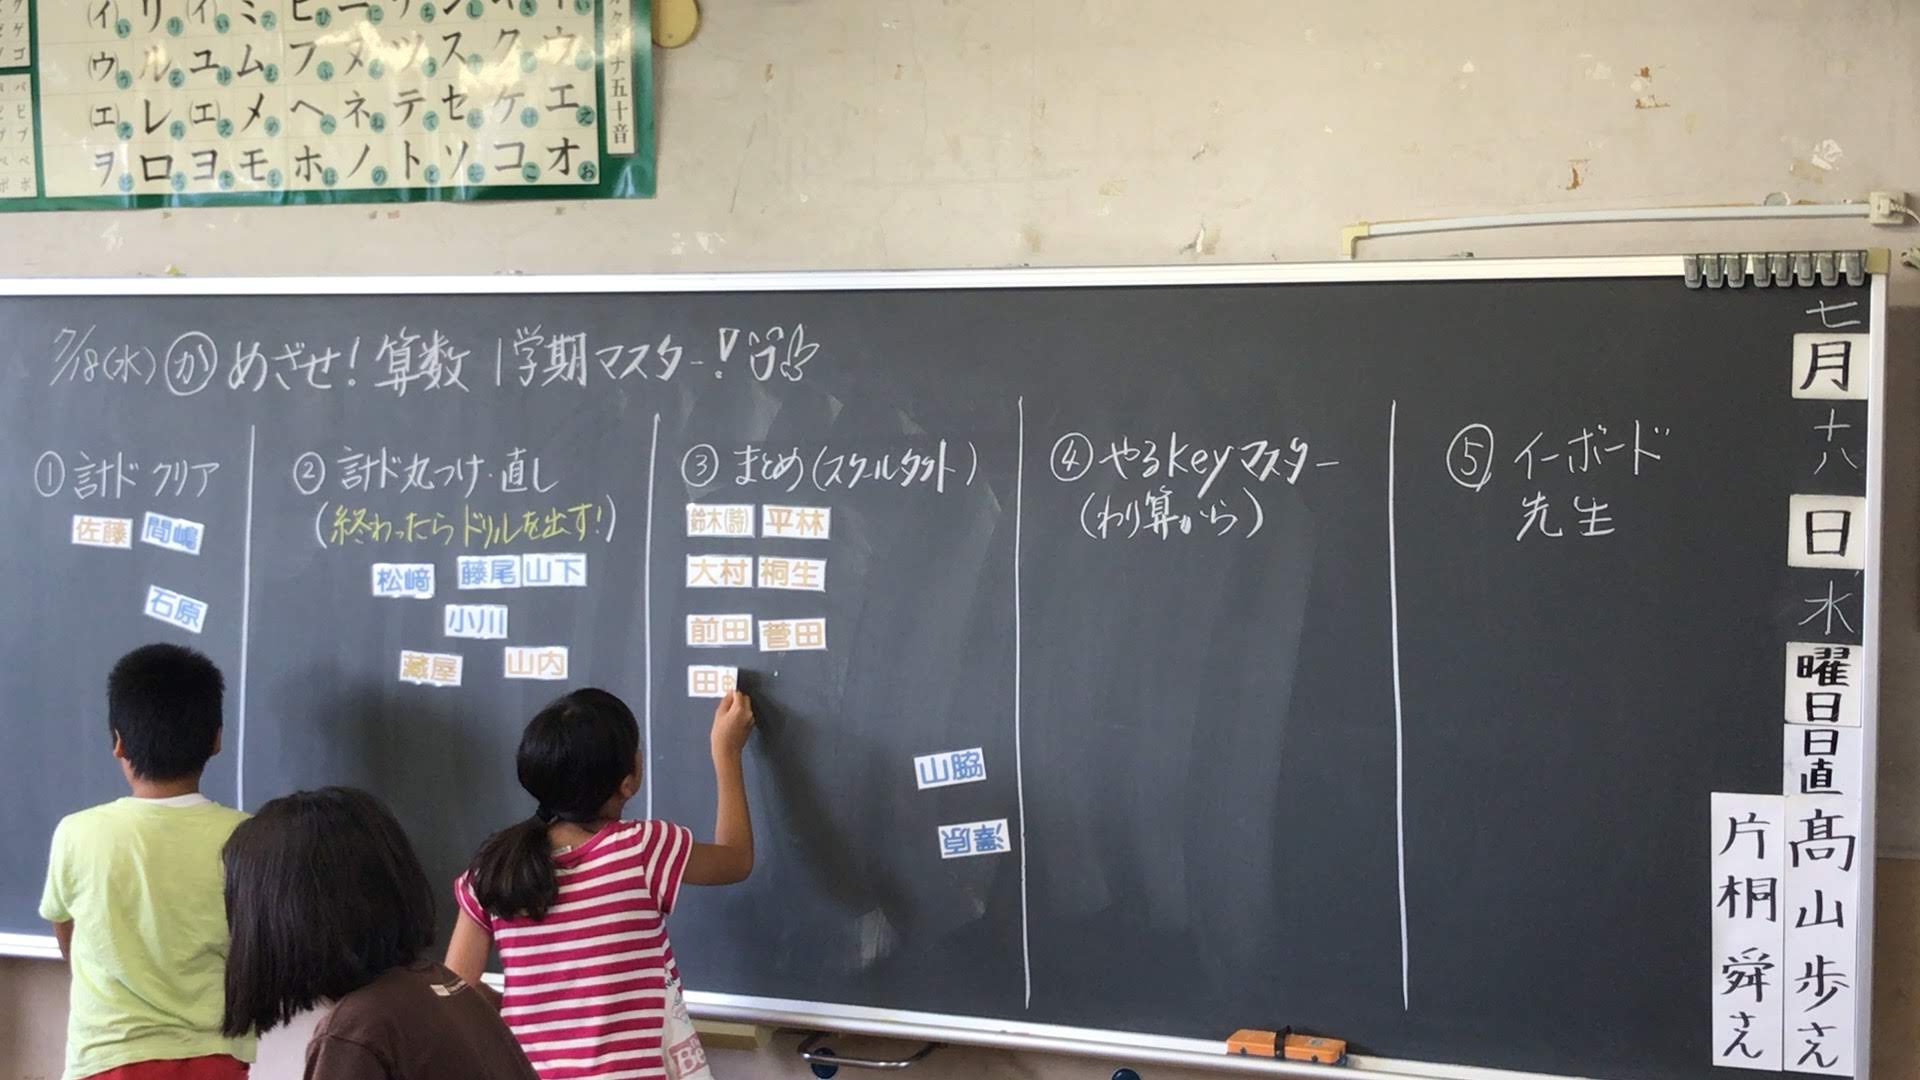 (イ) リ (イ) ミ ヒ ニ チ シ キ イ
(ウ) ル ユ ム フ ヌ ツ ス ク ウ
(エ) レ (エ) メ ヘ ネ テ セ ケ エ
ヲ ロ ヨ モ ホ ノ ト ソ コ オ
カタカナ五十音
7/18(水) か めざせ!算数 1学期マスター!
① 計ド クリア
佐藤 間嶋
石原
② 計ド丸つけ・直し
(終わったらドリルを出す!)
松﨑 藤尾 山下
小川
蔵屋 山内
③ まとめ(スクールタクト)
鈴木(詩) 平林
大村 桐生
前田 菅田
田
山脇
④ やるKeyマスター
(わり算から)
⑤ イーボード
先生
七月十八日水曜日
日直
髙山歩さん
片桐舜さん